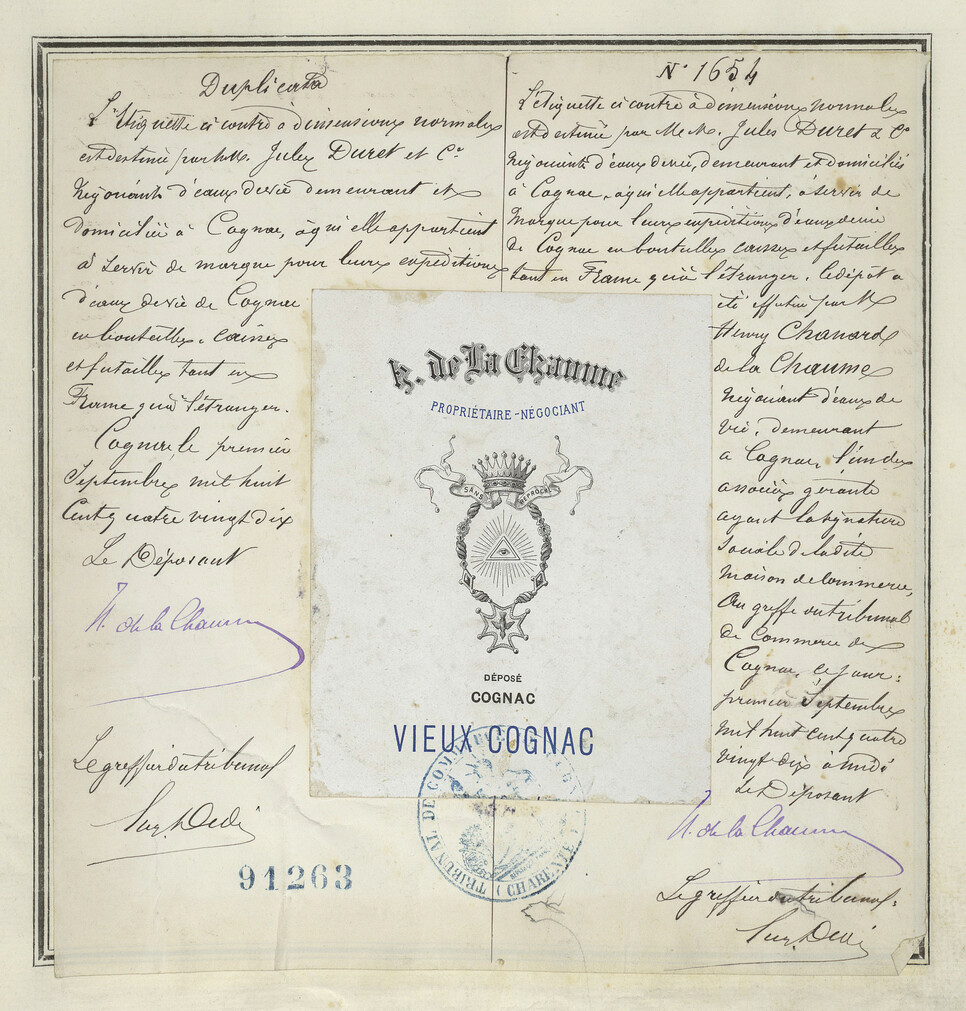 Duplicata
L'Etiquette ci contre à dimensions normales
est destinée par MM. Jules Duret et Cie
Négociants d'eaux de vie demeurant et
domiciliés à Cognac, à qui elle appartient
à servir de marque pour leurs expéditions
d'eaux de vie de Cognac
en bouteilles, caisses
et futailles tant en
France qu'à l'étranger.
Cognac, le premier
Septembre mil huit
Cent quatre vingt dix
Le Déposant
H. de la Chaume
Le greffier du tribunal
91263
N° 1654
L'Etiquette ci contre à dimensions normales
est destinée par M.M. Jules Duret & Cie
Négociants d'eaux de vie, demeurant et domiciliés
à Cognac, à qui elle appartient, à servir de
Marque pour leurs expéditions d'eaux de vie
de Cognac en bouteilles caisses et futailles
tant en France qu'à l'étranger. Le dépôt a
été effectué par M
Henry Chanard
de la Chaume
Négociant d'eaux de
vie, demeurant
à Cognac, l'un des
associés gérants
ayant la signature
Sociale de la dite
Maison de Commerce,
Au greffe du tribunal
de Commerce de
Cognac, ce jour:
premier Septembre
mil huit cent quatre
vingt dix à midi
Le Déposant
H. de la Chaume
Le greffier du tribunal:
H. de La Chaume
PROPRIÉTAIRE-NÉGOCIANT
SANS REPROCHE
DÉPOSÉ
COGNAC
VIEUX COGNAC
TRIBUNAL DE COMMERCE
(CHARENTE)